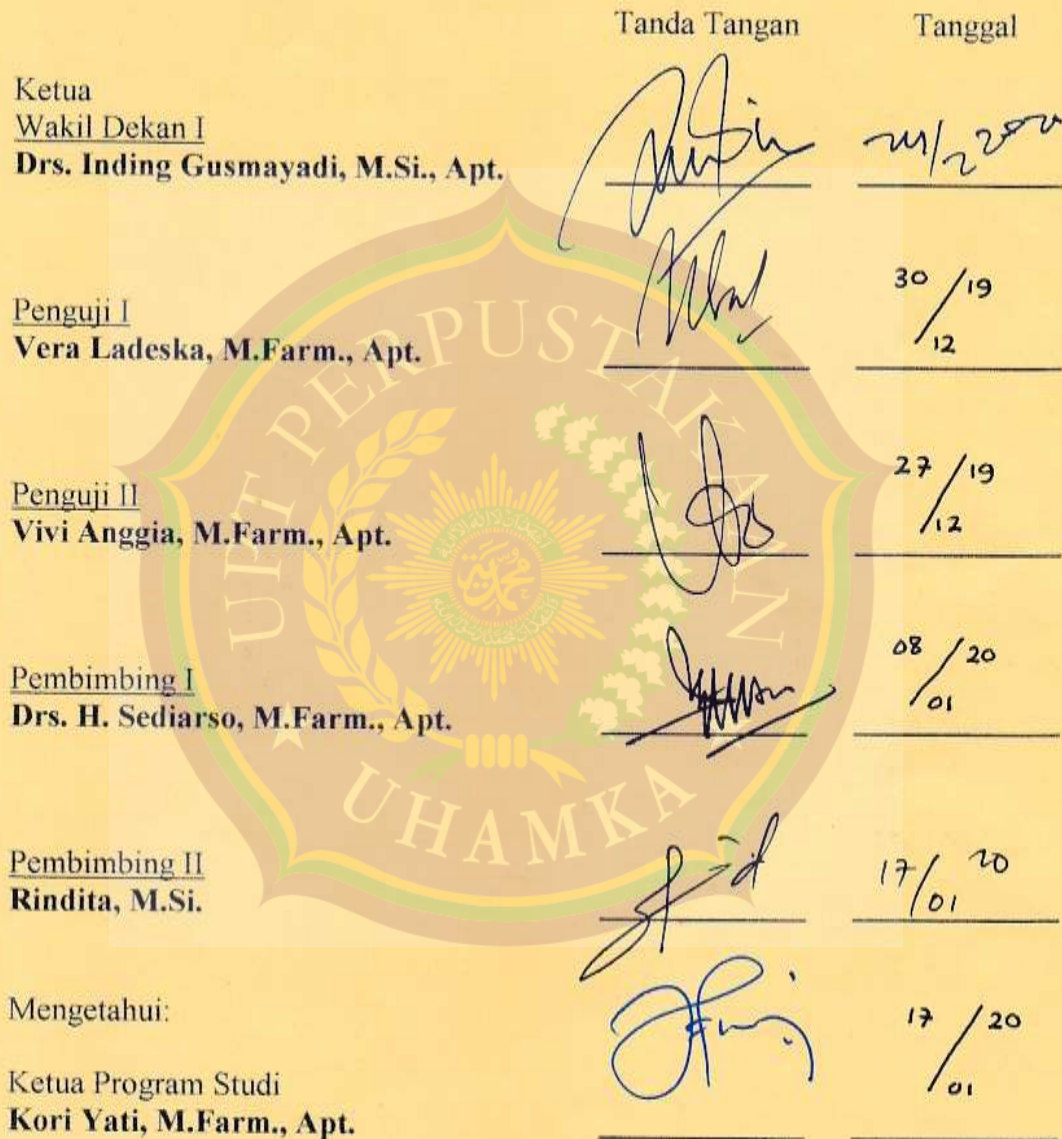 Tanda Tangan Tanggal
Ketua
Wakil Dekan I
Drs. Inding Gusmayadi, M.Si., Apt.
Penguji I
Vera Ladeska, M.Farm., Apt.
30/12 19
Penguji II
Vivi Anggia, M.Farm., Apt.
27/12 19
Pembimbing I
Drs. H. Sediarso, M.Farm., Apt.
08/01 20
Pembimbing II
Rindita, M.Si.
17/01 20
Mengetahui:
Ketua Program Studi
Kori Yati, M.Farm., Apt.
17/01 20
UPT PERPUSTAKAAN
UHAMKA
محمدية